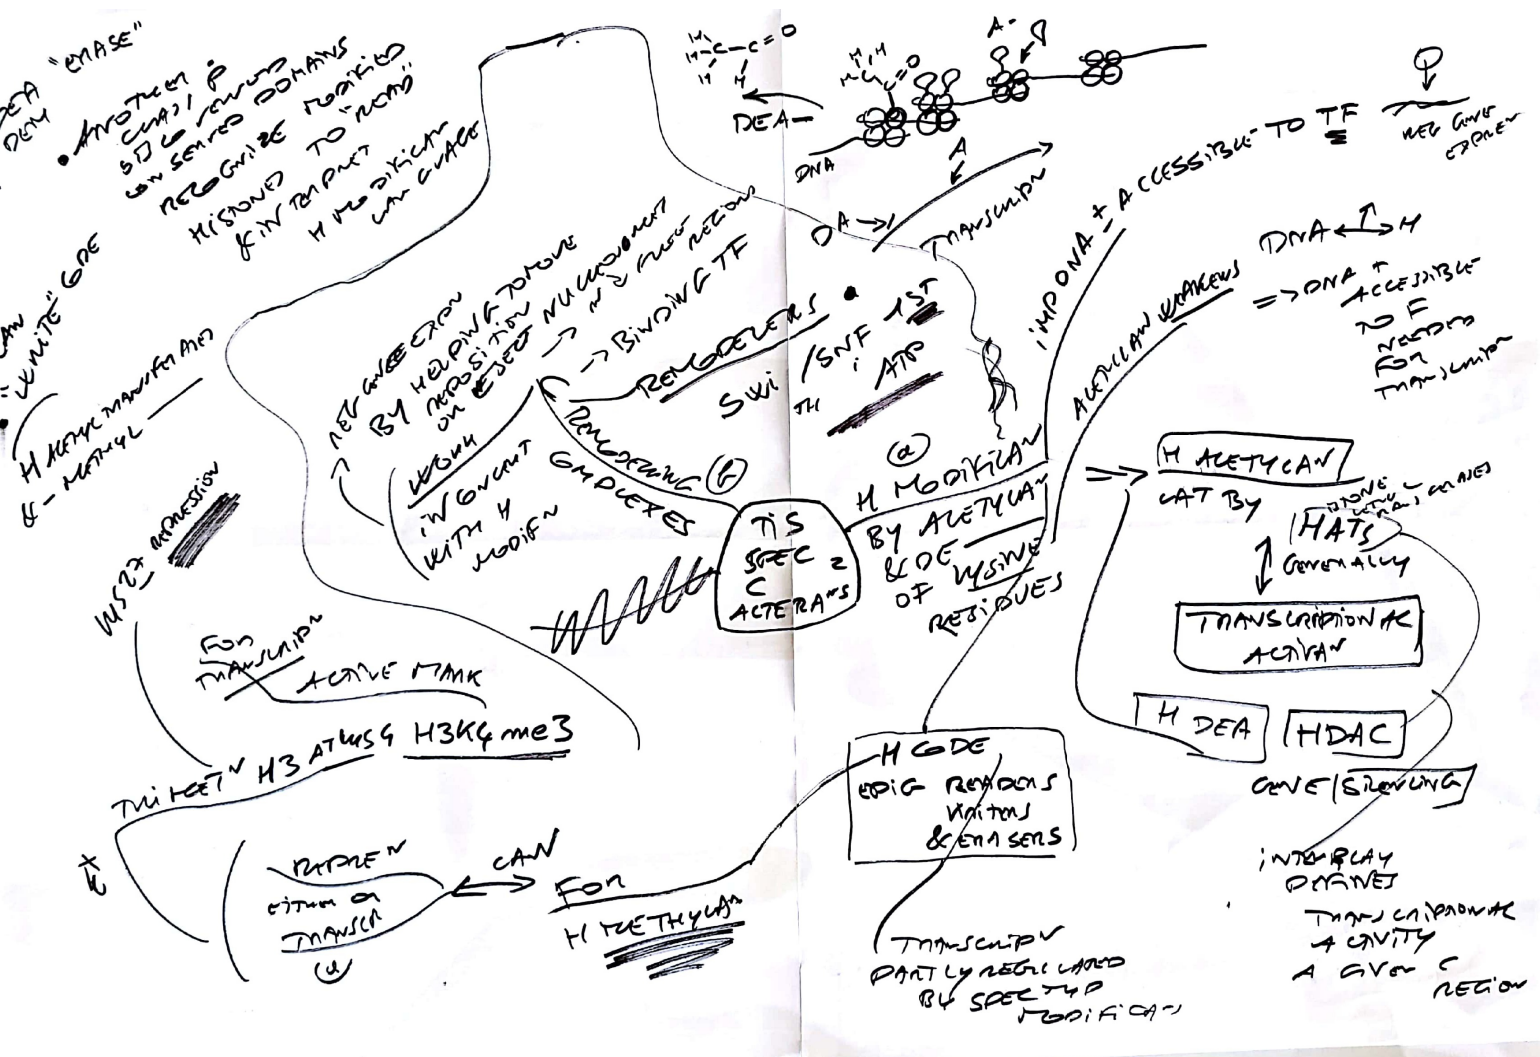 DEA "ERASE"
DEM
• ANOTHER
CLASS P
CONSERVED DOMAINS
RECOGNIZE MODIFIED
HISTONES TO "READ"
& INTERPRET
H MODIFICAN
LANGUAGE
CAN
"WRITE" CODE
H ACETYLTRANSFERASES
& - METHYL
REPRESSION
FOR
TRANSCRIPN
ACTIVE MARK
H3K4me3
TRIMEETN H3 AT LYS4
REPREN
EITHER OR
TRANSCR
CAN
FOR
H METHYLAN
REG GNE EXPN
BY HELPING TO MOVE
REPOSITION
OR EJECT NUCLEOSOMES
→ N FREE REGIONS
→ BINDING TF
WORK
IN CONCERT
WITH H
MODIFN
REMODELERS •
SWI /SNF 1ST
ATP
REMODELING (b)
COMPLEXES
TIS
SPEC
C
ALTERANS
(a)
H MODIFICAN
BY ACETYLAN
& DE
OF LYSINE
RESIDUES
H
H C C O
H H
DEA-
H H
H C C O
A-
DNA
A
DA →
TRANSCRIPN
IMP DNA + ACCESSIBLE TO TF
REG GNE
EXPREN
ACETYLAN WEAKENS
DNA ↔ H
=> DNA +
ACCESSIBLE
TO F
NEEDED
FOR
TRANSCRIPN
H ACETYLAN
CAT BY
HISTONE
HATS
GENERALLY
TRANSCRIPTIONAL
ACTIVAN
H DEA
HDAC
GENE/SILENCING
INTERPLAY
DEFINES
TRANSCRIPTIONAL
ACTIVITY
A GIVEN C
REGION
H CODE
EPIG READERS
WRITERS
& ERASERS
TRANSCRIPN
PARTLY REGULATED
BY SPEC TYP
MODIFICANS